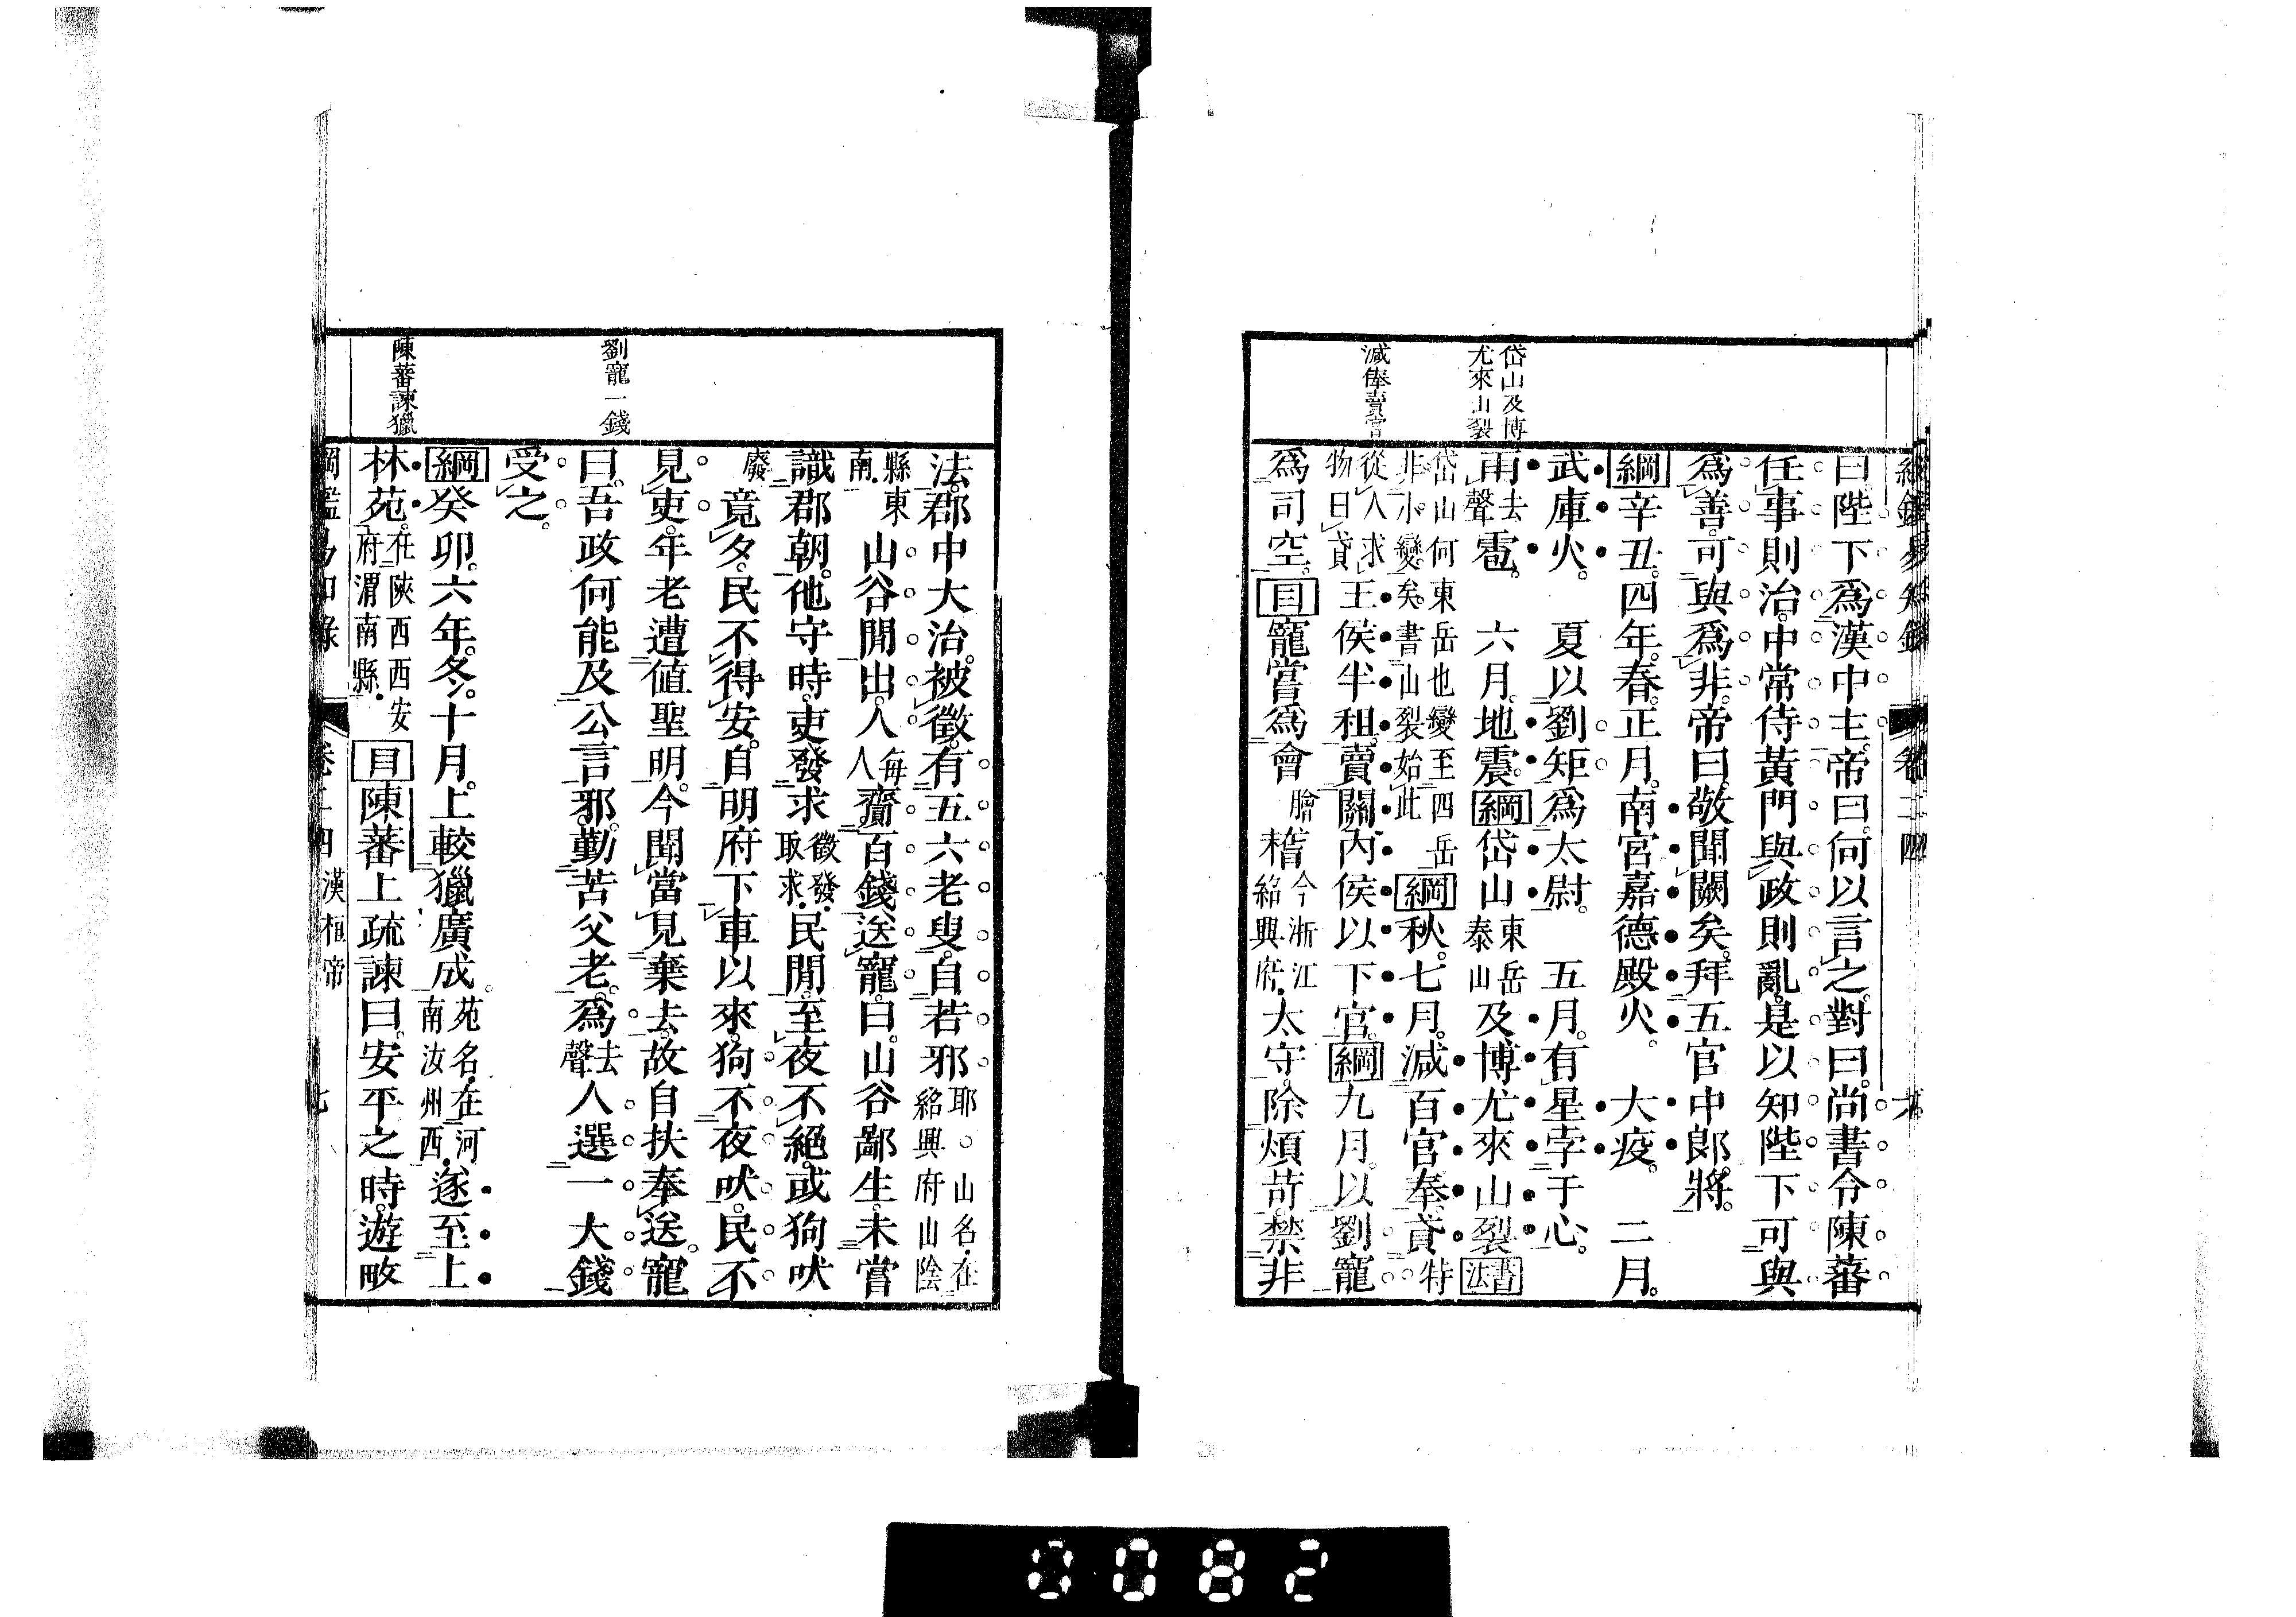 綱鑑易知錄　卷二四　六
岱山及博
尤來山裂
減俸賣官
曰。陛下爲漢中主。帝曰。何以言之。對曰。尚書令陳蕃
任事則治。中常侍黃門與政則亂。是以知陛下可與
爲善。可與爲非。帝曰。敬聞闕矣。拜五官中郞將。
綱辛丑。四年。春。正月。南宮嘉德殿火。　大疫。　二月。
武庫火。　夏以劉矩爲太尉。　五月。有星孛于心。
雨去聲雹。　六月。地震。綱岱山東岳泰山及博尤來山裂書法
岱山何東岳也變至四岳非小變矣。書山裂始此　綱秋。七月。減百官奉。貣特
從人求物曰貣王侯半租。賣關內侯以下官。綱九月。以劉寵
爲司空。目寵嘗爲會膾稽今浙江紹興府。太守。除煩苛。禁非
劉寵一錢
陳蕃諫獵
法。郡中大治。被徵。有五六老叟。自若邪耶○山名。在紹興府山陰
縣東南。山谷閒出。人每人齎百錢送寵。曰。山谷鄙生。未嘗
識郡朝。他守時。吏發求徵發。取求。民閒。至夜不絕。或狗吠
廢竟夕。民不得安。自明府下車以來。狗不夜吠。民不
見吏。年老遭値聖明。今聞當見棄去。故自扶奉送。寵
曰。吾政何能及公言邪。勤苦父老。爲去聲人選一大錢
受之。
綱癸卯。六年。冬。十月。上較獵廣成。苑名。在河南汝州西。遂至上
林苑。在陝西西安府渭南縣。目陳蕃上疏諫曰。安平之時。遊畋
綱鑑易知錄　卷二四　漢桓帝　七
0082